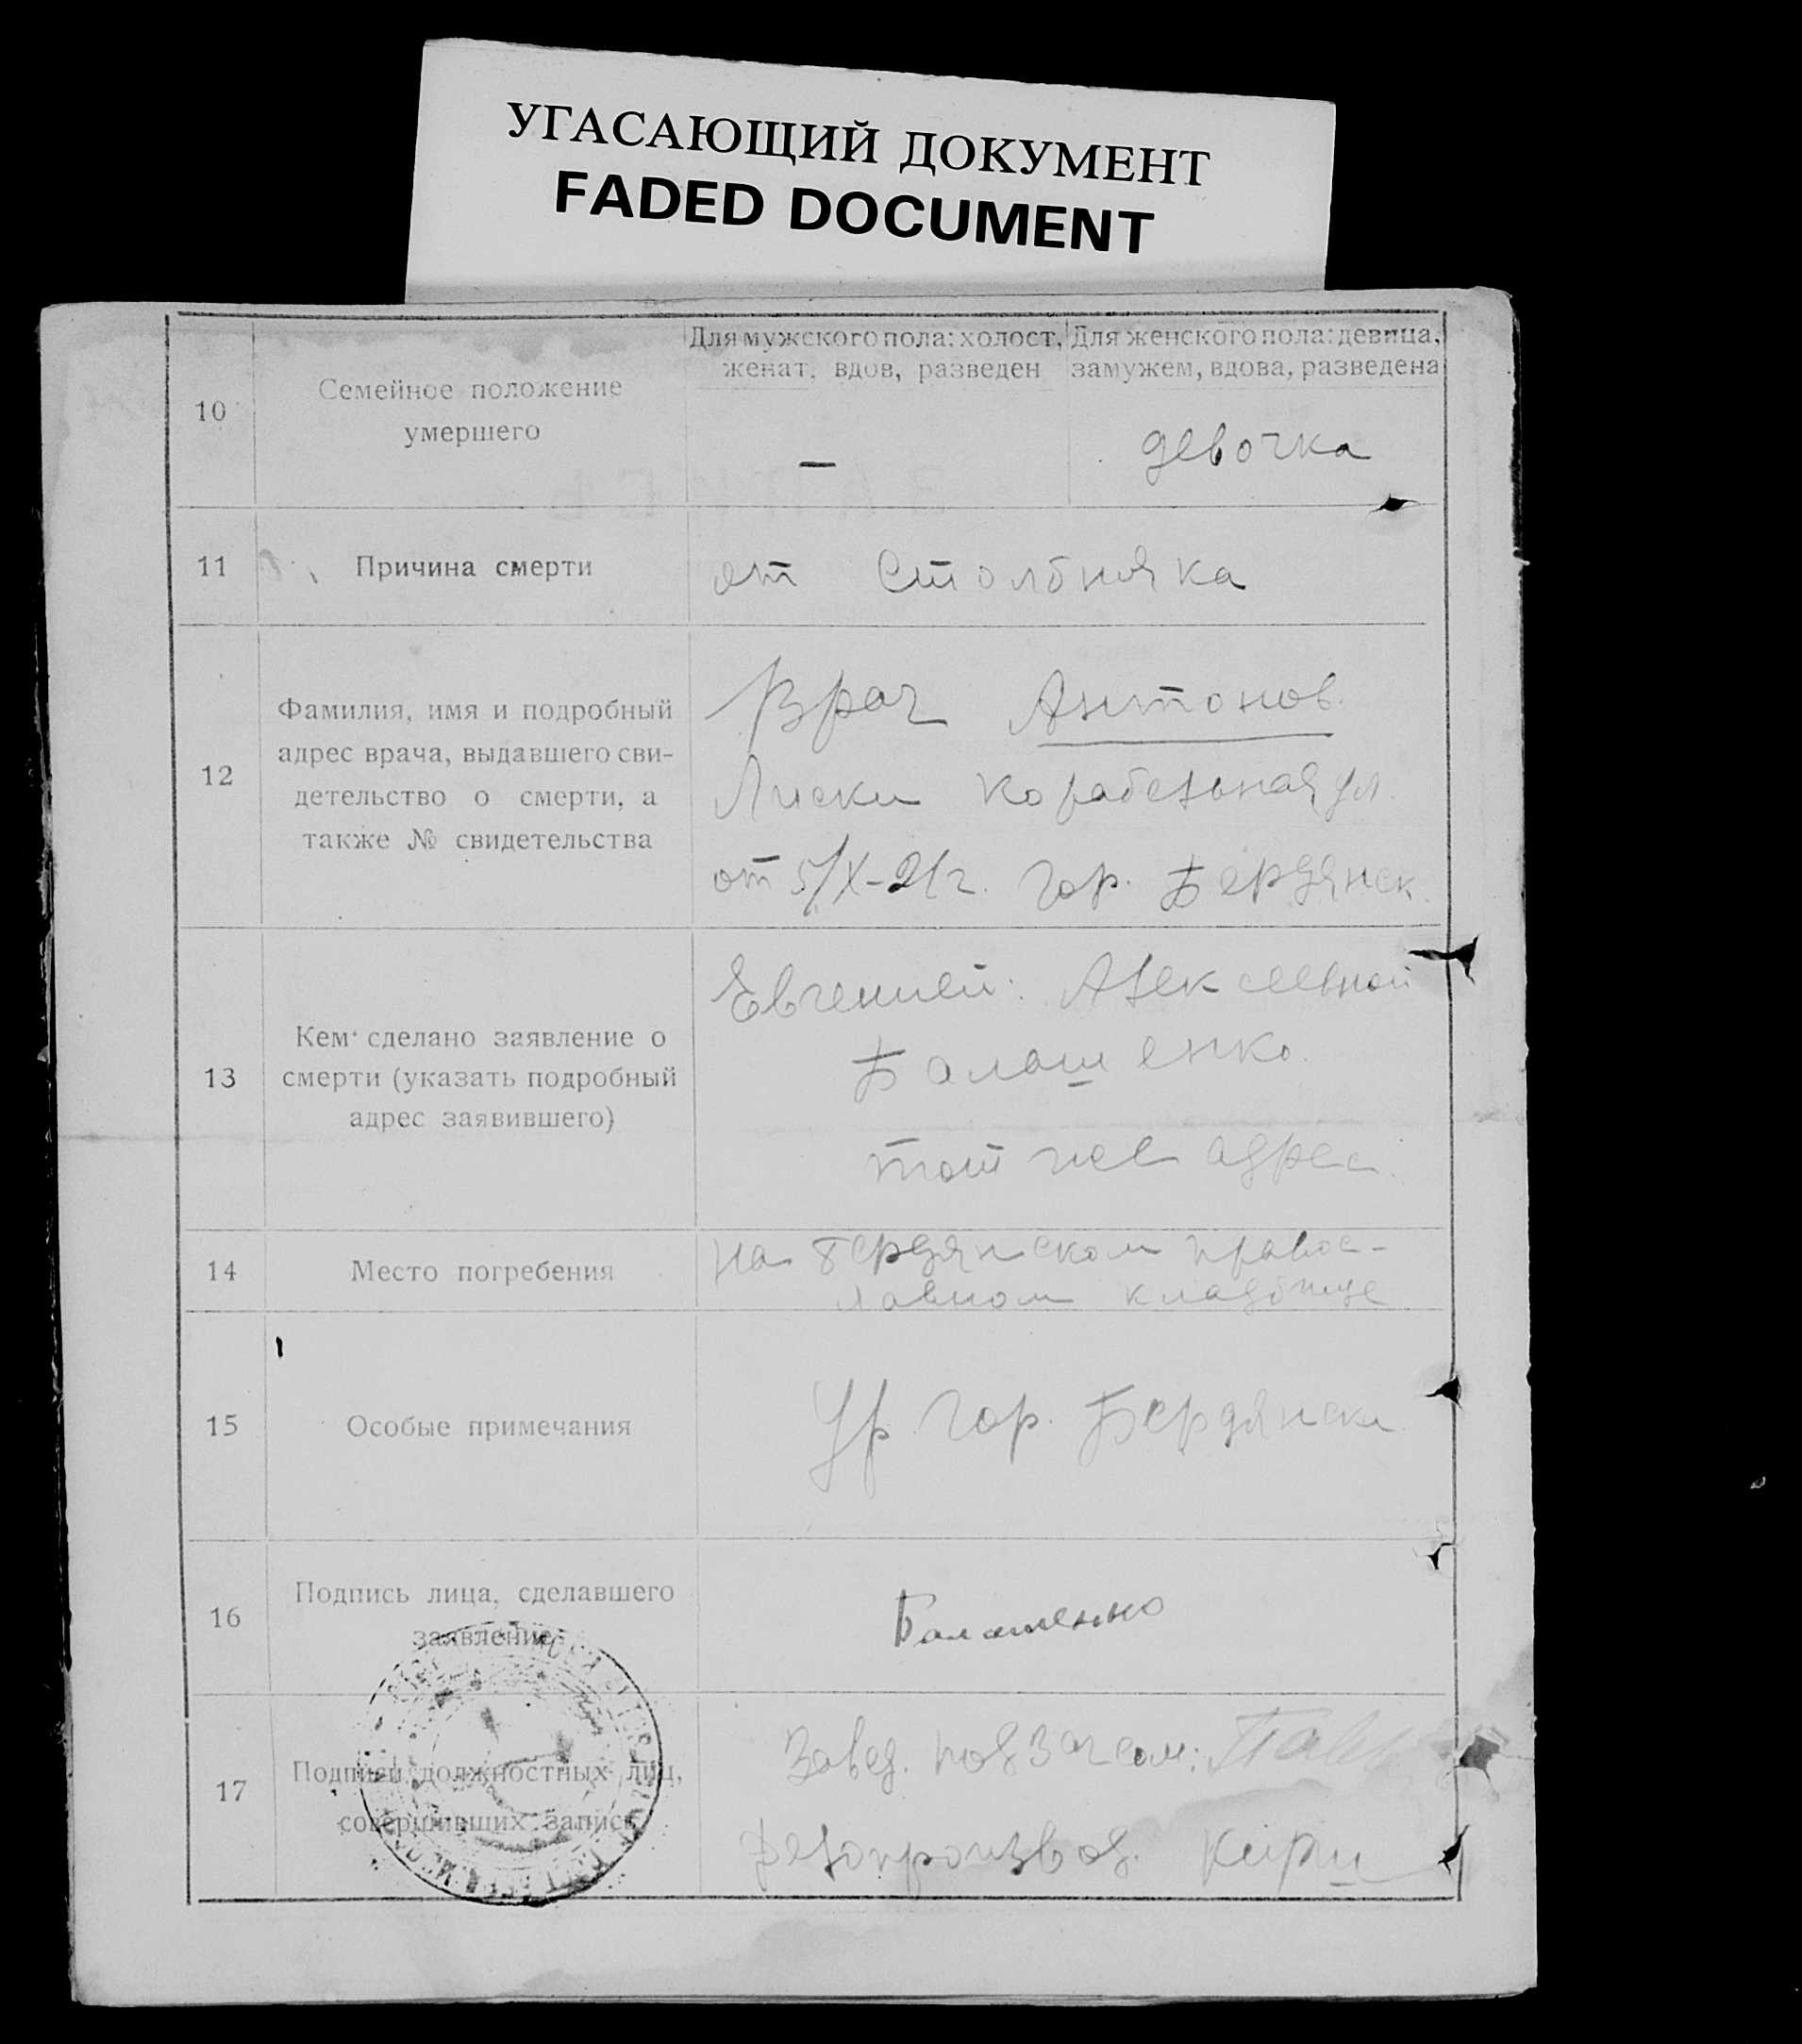 УГАСАЮЩИЙ ДОКУМЕНТ
FADED DOCUMENT
10
Семейное положение
умершего
Для мужского пола: холост,
женат, вдов, разведен
—
Для женского пола: девица,
замужем, вдова, разведена
девочка
11
Причина смерти
от Столбняка
12
Фамилия, имя и подробный
адрес врача, выдавшего сви-
детельство о смерти, а
также № свидетельства
Врач Антонов.
Лиски Корабельная ул.
от 5/X-21г. гор. Бердянск.
13
Кем сделано заявление о
смерти (указать подробный
адрес заявившего)
Евгенией Алексеевной
Балашенко.
тот же адрес.
14
Место погребения
на бердянском правос-
лавном кладбище
15
Особые примечания
Ур гор. Бердянска
16
Подпись лица, сделавшего
заявление
Балашенко
17
Подписи должностных лиц,
совершивших запись
Завед. подзагсом:
Делопроизвод.